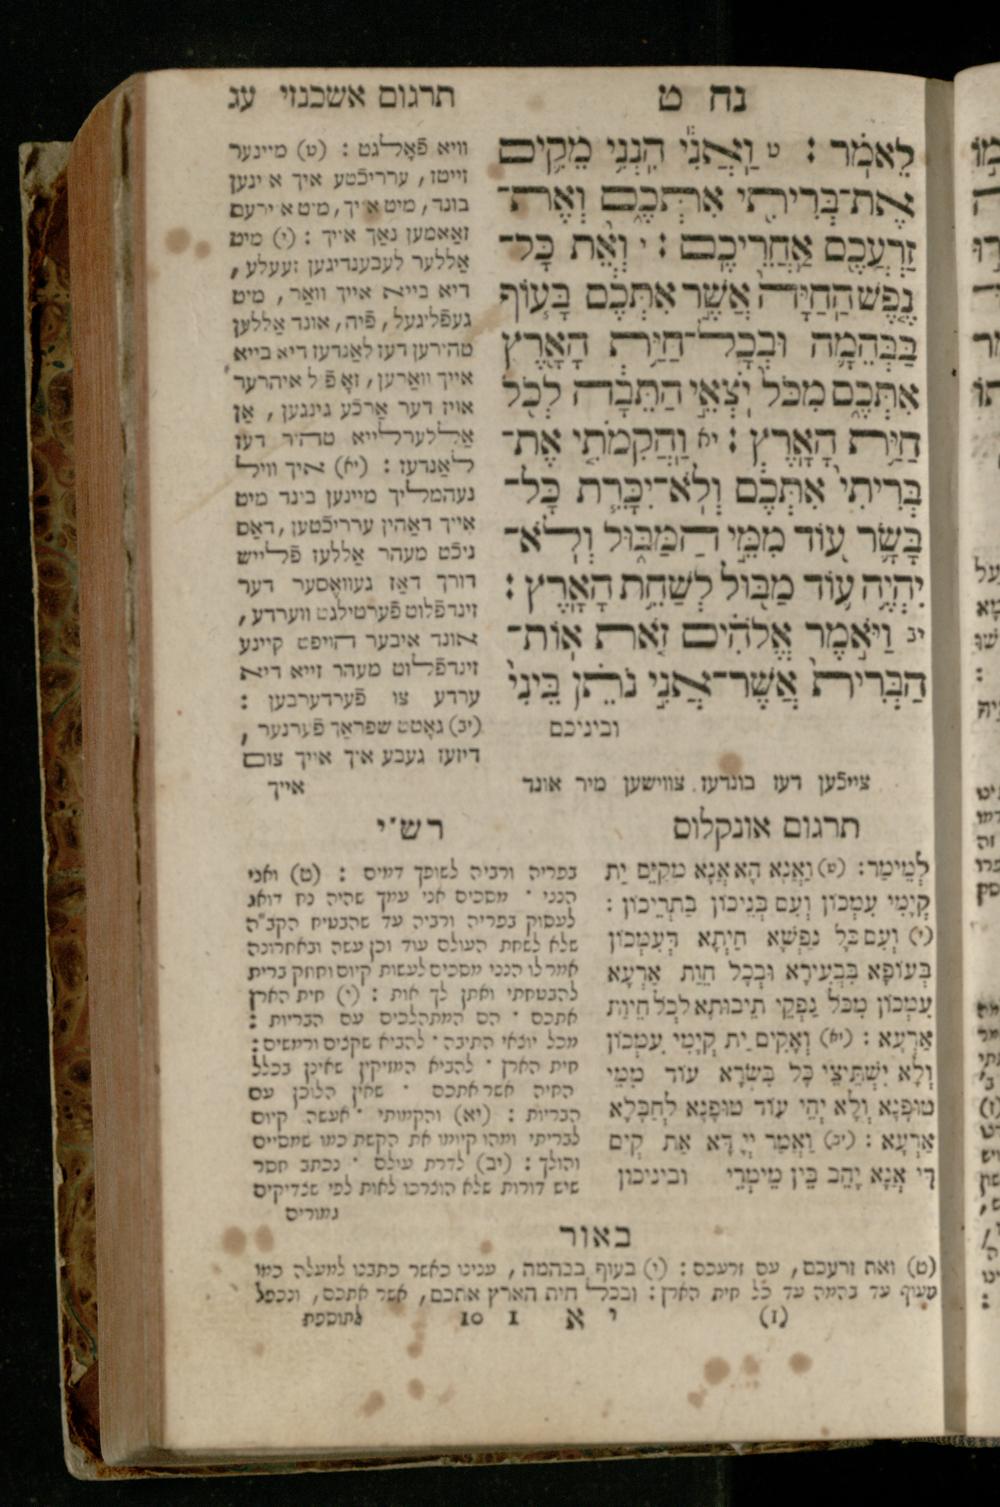 נח ט
תרגום אשכנזי עג
לֵאמֹר׃ ט וַאֲנִי הִנְנִי מֵקִים
אֶת־בְּרִיתִי אִתְּכֶם וְאֶת־
זַרְעֲכֶם אַחֲרֵיכֶם׃ י וְאֵת כָּל־
נֶפֶשׁ הַחַיָּה אֲשֶׁר אִתְּכֶם בָּעוֹף
בַּבְּהֵמָה וּבְכָל־חַיַּת הָאָרֶץ
אִתְּכֶם מִכֹּל יֹצְאֵי הַתֵּבָה לְכֹל
חַיַּת הָאָרֶץ׃ יא וַהֲקִמֹתִי אֶת־
בְּרִיתִי אִתְּכֶם וְלֹא־יִכָּרֵת כָּל־
בָּשָׂר עוֹד מִמֵּי הַמַּבּוּל וְלֹא־
יִהְיֶה עוֹד מַבּוּל לְשַׁחֵת הָאָרֶץ׃
יב וַיֹּאמֶר אֱלֹהִים זֹאת אוֹת־
הַבְּרִית אֲשֶׁר־אֲנִי נֹתֵן בֵּינִי
וביניכם
וויא פֿאָלגט : (ט) מיינער
זייטז, ערריכֿטע איך איינען
בונד, מיט אייך, מיט אייערעם
זאַאמען נאַך אייך : (י) מיט
אַללער לעבענדיגען זעעלע,
דיא בייא אייך וואַר, מיט
געפֿליגעל, פֿיה, אונד אַללען
טהירען דעז לאַנדעז דיא בייא
אייך וואַרען, זאָ פֿיל איהרער
אויז דער אַרכֿע גינגען, אַן
אַללערלייא טהיר דעז
לאַנדעז : (יא) איך וויל
נעהמליך מיינען בינד מיט
אייך דאַהין ערריכֿטען, דאַס
ניכֿט מעהר אַללעז פֿלייש
דורך דאַז געוואַסער דער
זינדפֿלוט פֿערטילגט ווערדע,
אונד איבער הויפט קיינע
זינדפֿלוט מעהר זייא דיא
ערדע צו פֿערדערבען :
(יב) גאָטט שפראַך פֿערנער,
דיזעז געבע איך אייך צום
אייך
צייכֿען דעז בונדעז. צווישען מיר אונד
תרגום אונקלוס
לְמֵימַר: (ט) וַאֲנָא הָא אֲנָא מְקַיֵּם יַת
קְיָמִי עִמְּכוֹן וְעִם בְּנֵיכוֹן בַּתְרֵיכוֹן :
(י) וְעִם כָּל נַפְשָׁא חַיְתָא דְּעִמְּכוֹן
בְּעוֹפָא בִּבְעִירָא וּבְכָל חֵיוַת אַרְעָא
עִמְּכוֹן מִכֹּל נָפְקֵי תֵיבוּתָא לְכֹל חֵיוַת
אַרְעָא : (יא) וְאָקִים יַת קְיָמִי עִמְּכוֹן
וְלָא יִשְׁתֵּיצֵי כָּל בִּשְׂרָא עוֹד מִמֵּי
טוֹפָנָא וְלָא יְהֵי עוֹד טוֹפָנָא לְחַבָּלָא
אַרְעָא : (יב) וַאֲמַר יְיָ דָּא אַת קְיָם
דִּי אֲנָא יָהֵב בֵּין מֵימְרִי וביניכון
רש״י
בפריה ורביה לשופך דמים : (ט) ואני
הנני · מסכים אני עמך שהיה נח דואג
לעסוק בפריה ורביה עד שהבטיח הקב״ה
שלא לשחת העולם עוד וכן עשה ובאחרונה
אמר לו הנני מסכים לעשות קיום וחזוק ברית
להבטחתי ואתן לך אות : (י) חית הארץ
אתכם · הם המתהלכים עם הבריות :
מכל יוצאי התיבה · להביא שקצים ורמשים :
חית הארץ · להביא המזיקין שאינן בכלל
החיה אשר אתכם · שאין הלוכן עם
הבריות : (יא) והקמותי · אעשה קיום
לבריתי ומהו קיומו את הקשת כמו שמסיים
והולך : (יב) לדרת עולם · נכתב חסר
שיש דורות שלא הוצרכו לאות לפי שצדיקים
גמורים
באור
(ט) ואת זרעכם, עם זרעכם : (י) בעוף בבהמה, ענינו כאשר כתבנו למעלה כמו
מעוף עד בהמה עד כל חית הארץ : ובכל חית הארץ אתכם, אשר אתכם, ונכפל
(I) י א I 10 לתוספת